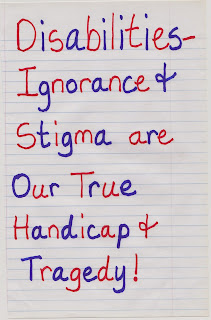 Disabilities-
Ignorance &
Stigma are
Our True
Handicap &
Tragedy!